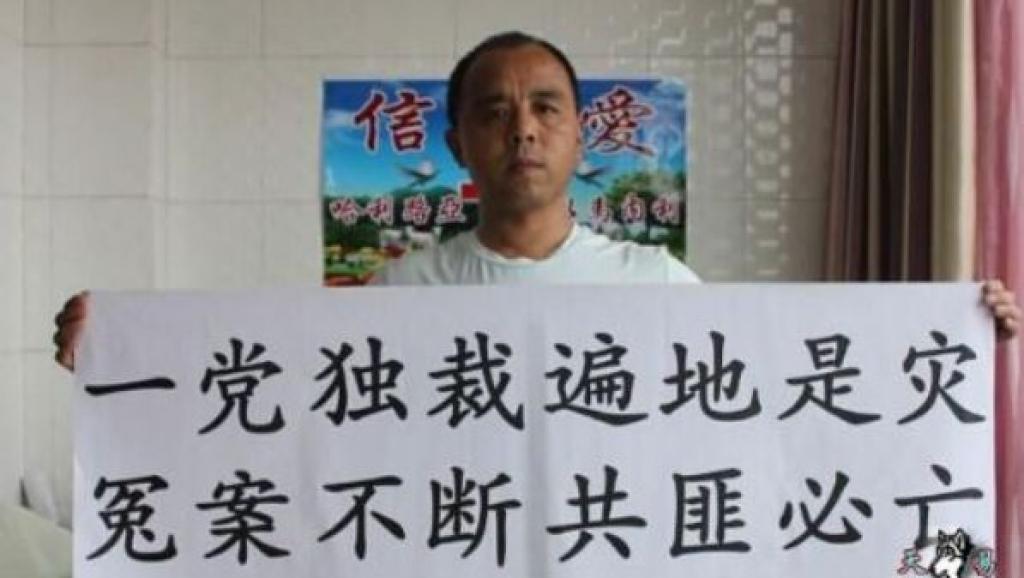 信 愛
哈利路亞 馬內利
一党独裁遍地是灾
冤案不断共匪必亡
天 易